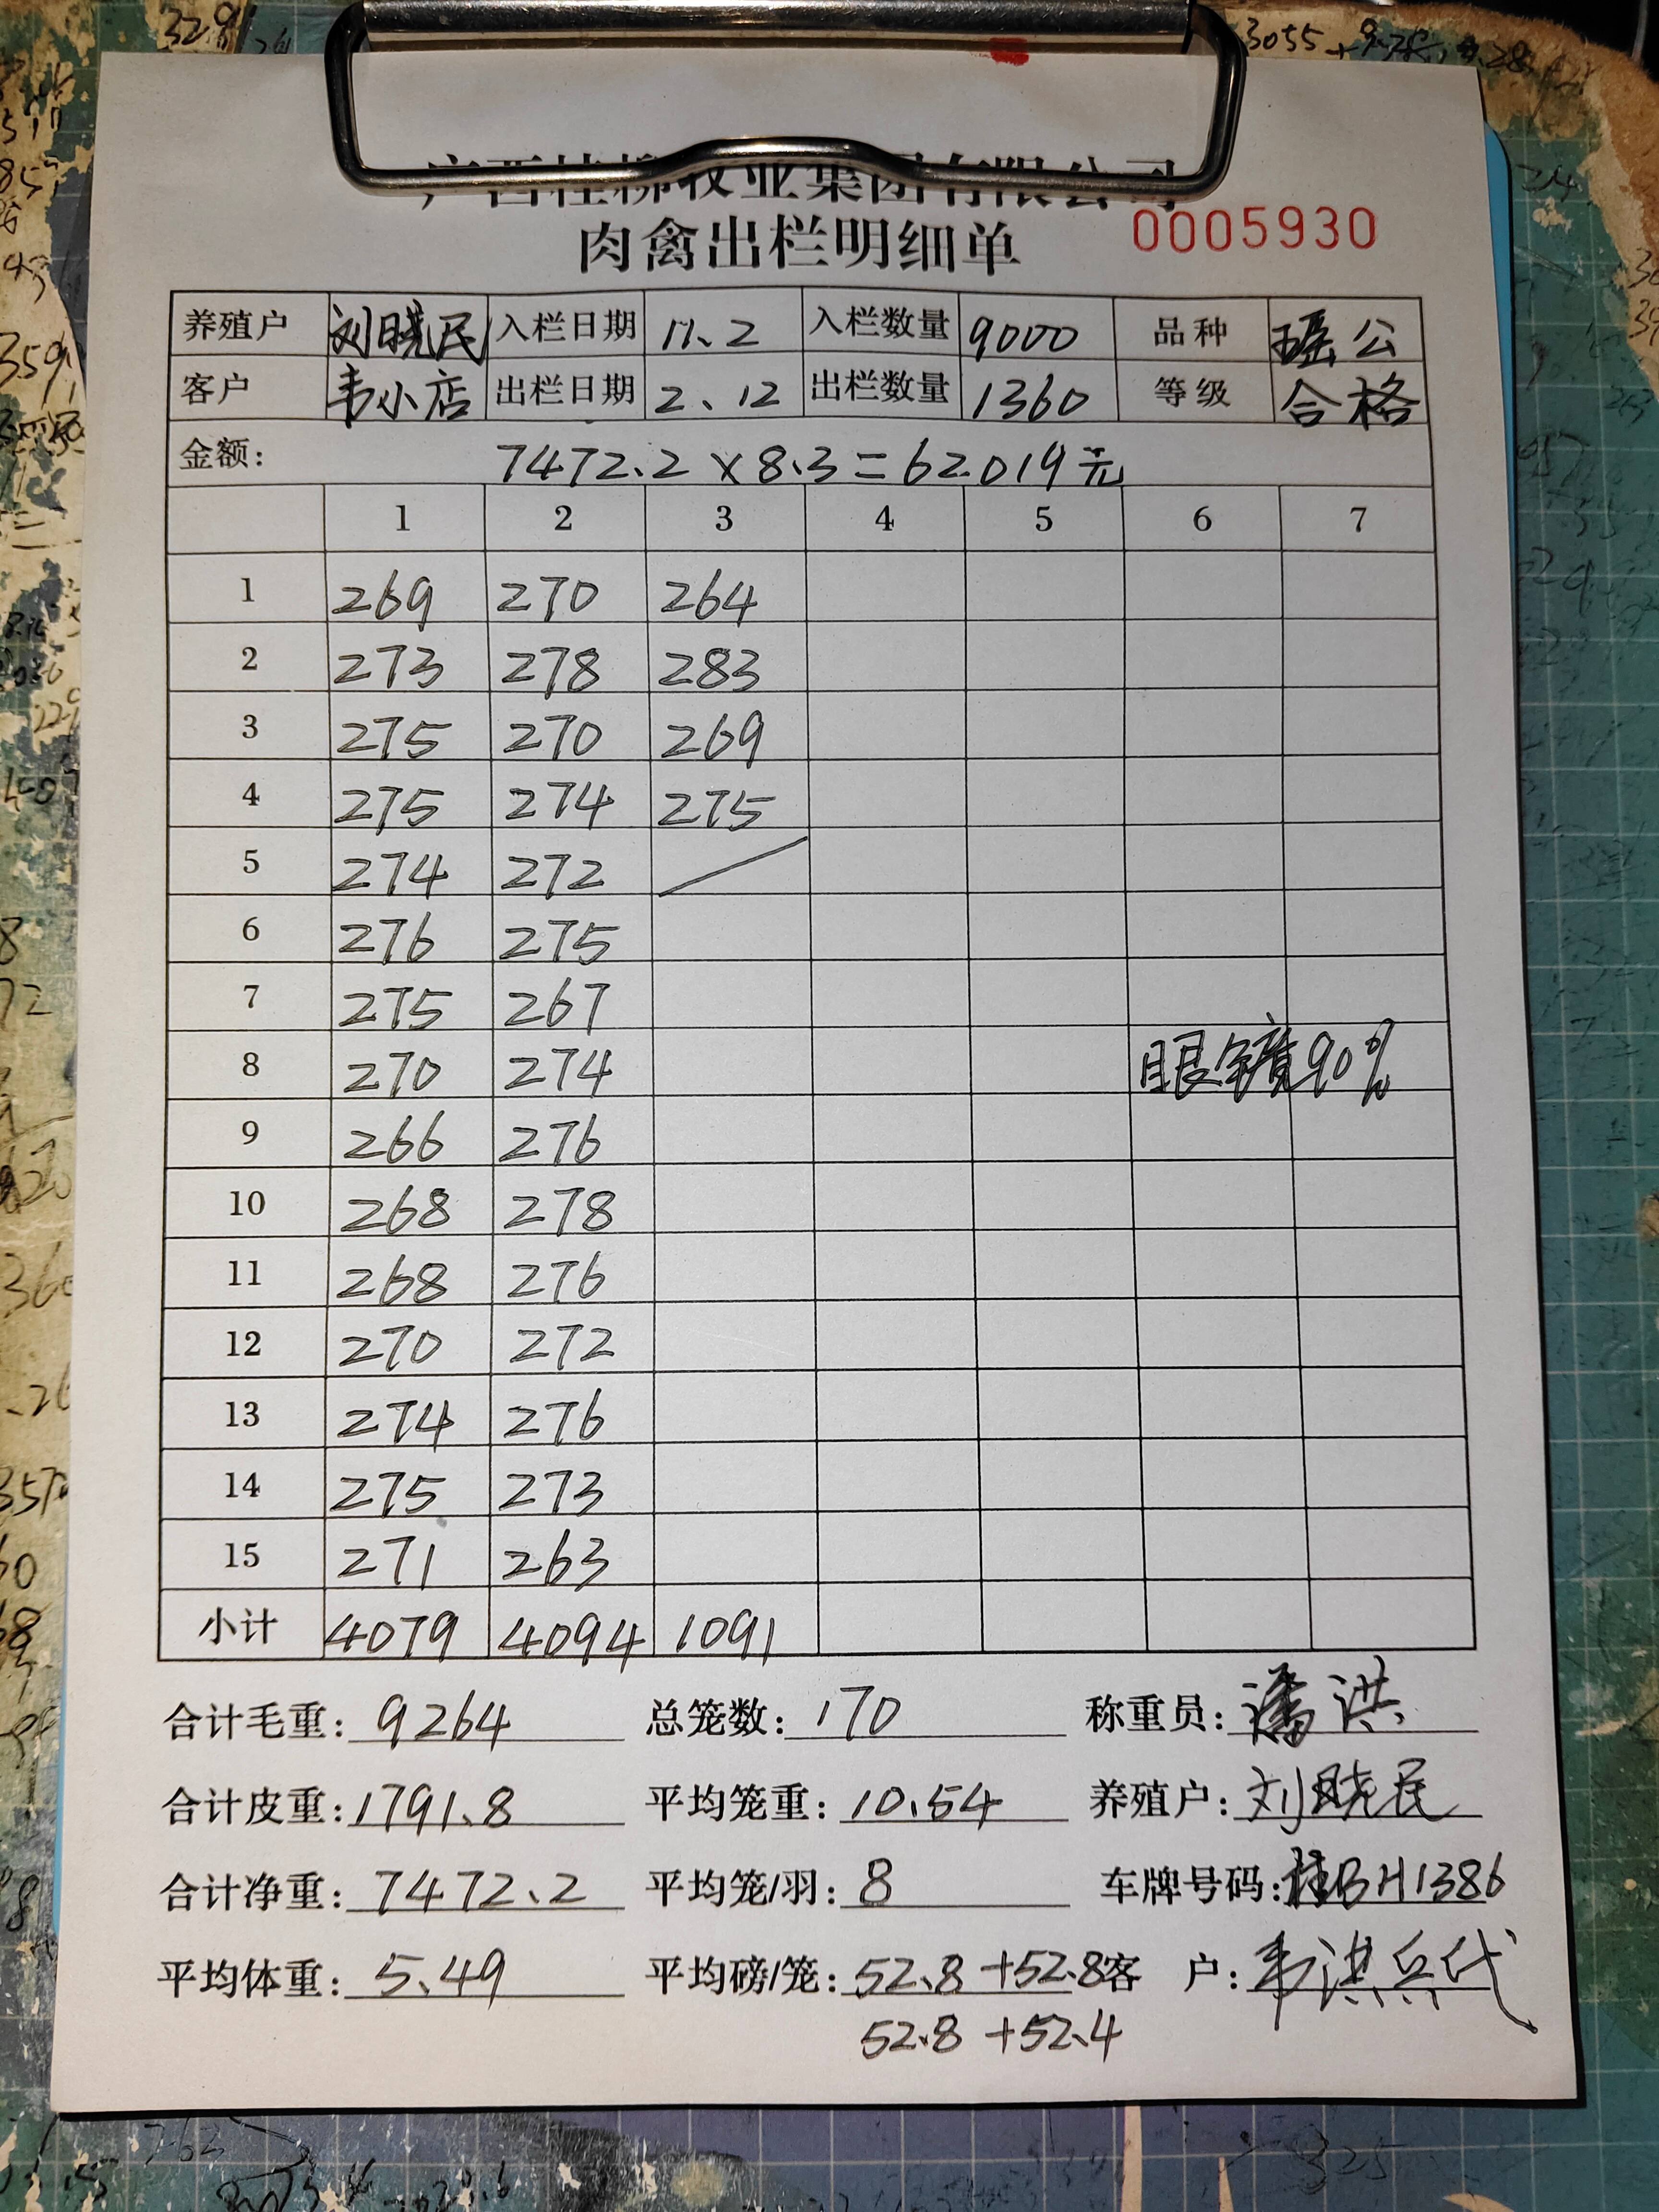 广西桂柳牧业集团有限公司
肉禽出栏明细单 0005930
养殖户 刘晓民 入栏日期 11、2 入栏数量 9000 品种 瑶公
客户 韦小店 出栏日期 2、12 出栏数量 1360 等级 合格
金额: 7472.2×8.3=62019元
1 2 3 4 5 6 7
1 269 270 264
2 273 278 283
3 275 270 269
4 275 274 275
5 274 272
6 276 275
7 275 267
8 270 274 眼镜90%
9 266 276
10 268 278
11 268 276
12 270 272
13 274 276
14 275 273
15 271 263
小计 4079 4094 1091
合计毛重: 9264 总笼数: 170 称重员: 潘洪
合计皮重: 1791.8 平均笼重: 10.54 养殖户: 刘晓民
合计净重: 7472.2 平均笼/羽: 8 车牌号码: 桂BH1386
平均体重: 5.49 平均磅/笼: 52.8+52.8 客户: 韦洪兵代
52.8+52.4